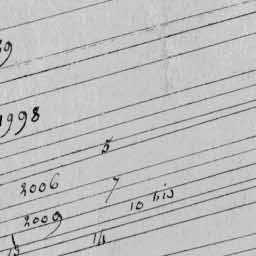 99
1998
5
2006 7
10 bis
2009
13 14